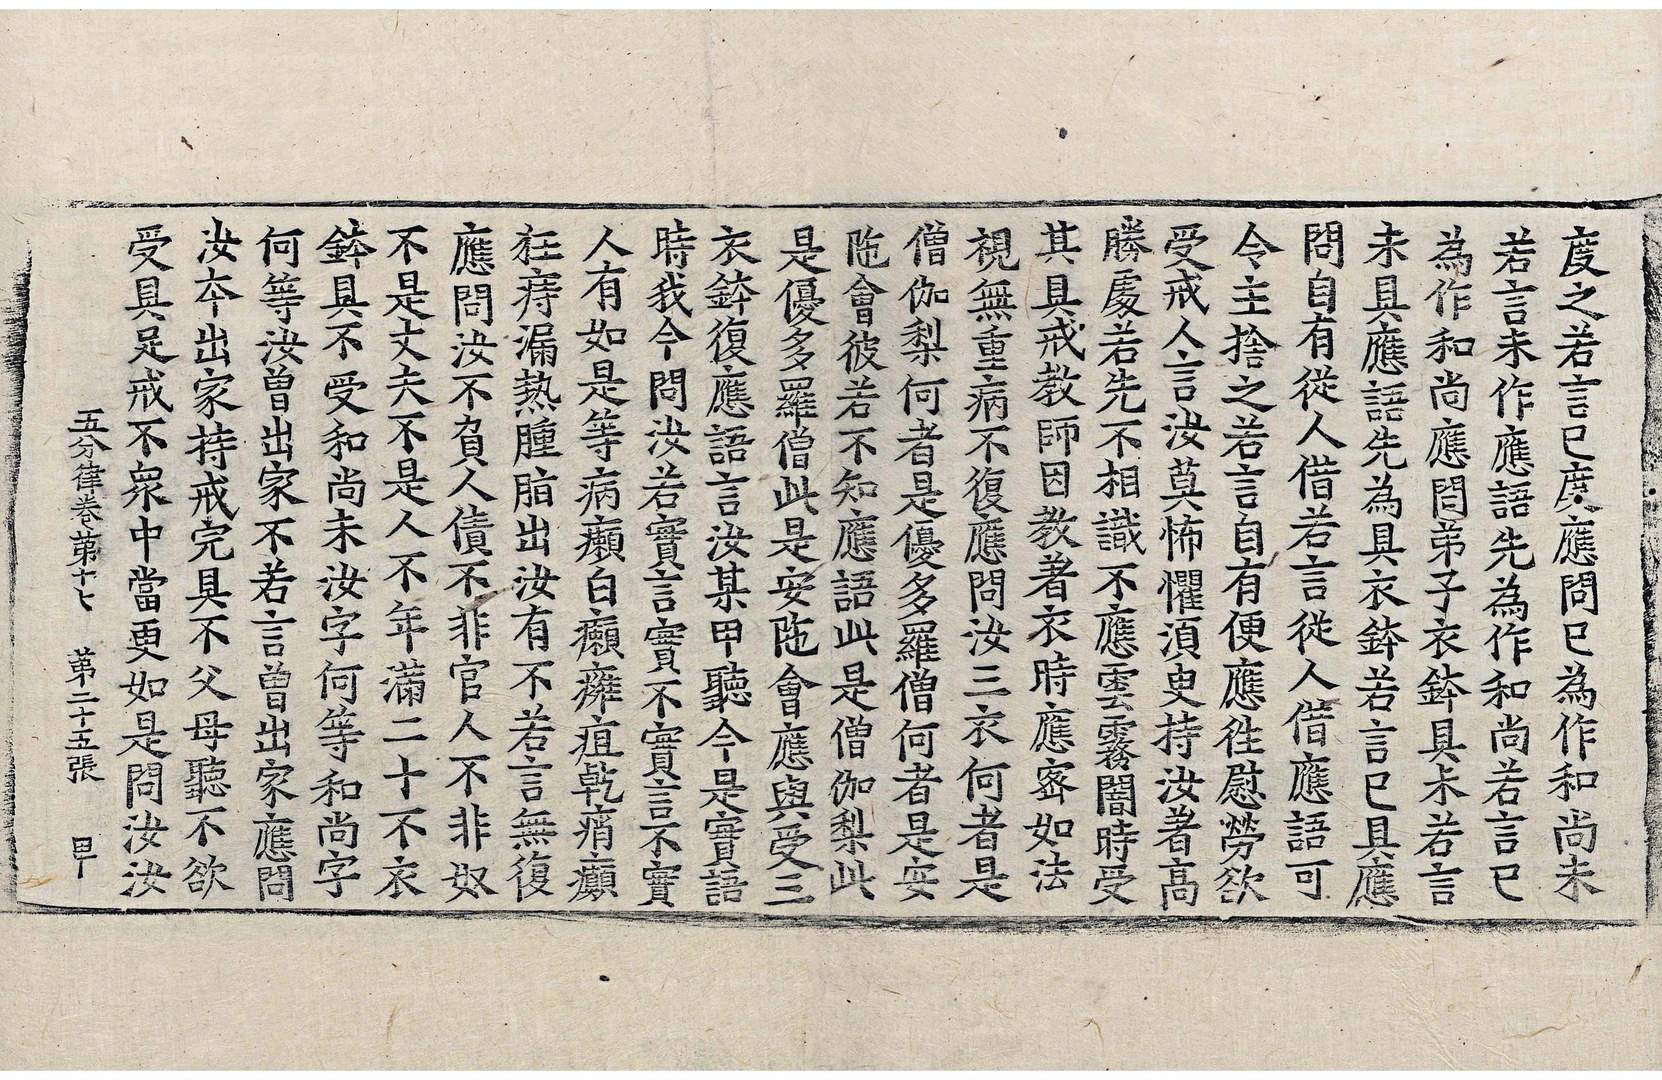 度之若言已度應問已為作和尚未
若言未作應語先為作和尚若言已
為作和尚應問弟子衣鉢具未若言
未具應語先為具衣鉢若言已具應
問自有從人借若言從人借應語可
令主捨之若言自有便應往慰勞欲
受戒人言汝莫怖懼湏臾持汝著高
勝處若先不相識不應雲霧闇時受
其具戒教師因教著衣時應宻如法
視無重病不復應問汝三衣何者是
僧伽梨何者是優多羅僧何者是安
陁會彼若不知應語此是僧伽梨此
是優多羅僧此是安陁會應與受三
衣鉢復應語言汝某甲聽今是實語
時我今問汝若實言實不實言不實
人有如是等病癩白癩癰疽乾痟癲
狂痔漏熱腫脂出汝有不若言無復
應問汝不負人債不非官人不非奴
不是丈夫不是人不年滿二十不衣
鉢具不受和尚未汝字何等和尚字
何等汝曾出家不若言曾出家應問
汝本出家持戒完具不父母聽不欲
受具足戒不衆中當更如是問汝汝
五分律卷第十七 第二十五張 甲